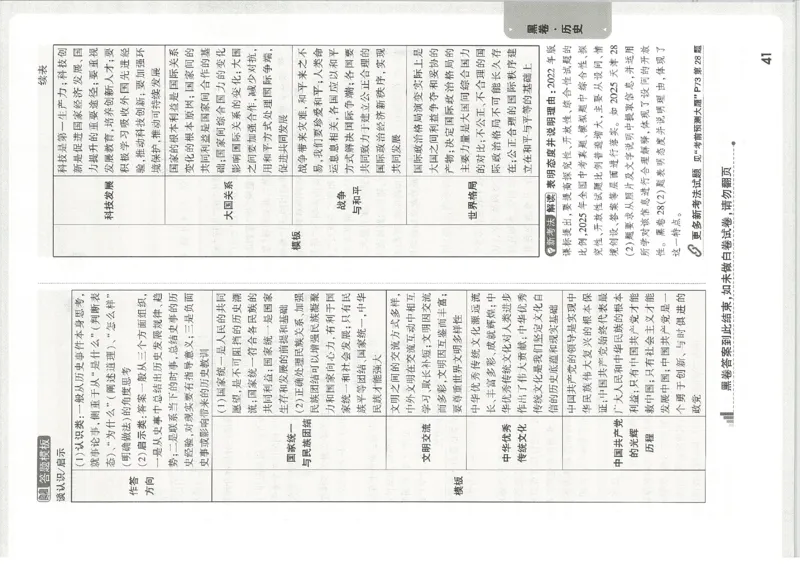 黑卷·历史
答题模板
谈认识/启示
作答
方向
(1)认识类:一般从历史事件本身思考,
就事论事,侧重于从“是什么”(判断表
态)、“为什么”(阐述道理)、“怎么样”
(明确做法)的角度思考
(2)启示类:答案一般从三个方面组织,
一是从史事中总结出历史发展规律、趋
势;二是联系当下的时事,总结史事的历
史经验,对现实要有指导意义;三是负面
史事或影响带来的历史教训
模板
国家统一
与民族团结
(1)国家统一是人民的共同
愿望,是不可阻挡的历史潮
流;国家统一符合各民族的
共同利益;国家统一是国家
生存和发展的前提和基础
(2)正确处理民族关系、加强
民族团结可以增强民族凝聚
力和国家向心力,有利于国
家统一和社会发展;只有民
族平等团结、国家统一,中华
民族才能强大
文明交流
文明之间的交流方式多样,
中外文明在交流互动中相互
学习、取长补短;文明因交流
而多彩,文明因互鉴而丰富;
要尊重世界文明多样性
中华优秀
传统文化
中华优秀传统文化源远流
长、丰富多彩、成就辉煌;中
华优秀传统文化对人类进步
作出了伟大贡献;中华优秀
传统文化是我们坚定文化自
信的历史底蕴和现实基础
中国共产党
的光辉
历程
中国共产党的领导是实现中
华民族伟大复兴的根本保
证;中国共产党始终代表最
广大人民和中华民族的根本
利益;只有中国共产党才能
救中国;只有社会主义才能
发展中国;中国共产党是一
个勇于创新、与时俱进的
政党
续表
模板
科技发展
科技是第一生产力;科技创
新是促进国家经济发展、国
力提升的重要途径;要重视
发展教育,培养创新人才;要
积极学习吸收外国先进经
验,推动科技创新;要加强环
境保护,推动可持续发展
大国关系
国家的根本利益是国际关系
变化的根本原因;国家间的
共同利益是国家间合作的基
础;国家间综合国力的变化
影响国际关系的变化;大国
之间要加强合作,减少对抗,
用和平方式处理国际争端,
促进共同发展
战争
与和平
战争带来灾难,和平来之不
易,我们要珍爱和平;人类命
运息息相关,各国应以和平
方式解决国际争端;各国要
共同致力于建立公正合理的
国际政治经济新秩序,实现
共同发展
世界格局
国际政治格局演变实际上是
大国之间利益争夺和妥协的
产物;决定国际政治格局的
主要力量是大国间综合国力
的对比;不公正、不合理的国
际政治格局不可能长久存
在;公正合理的国际秩序建
立在和平与平等的基础上
新考法 解读 表明态度并说明理由:2022年版
课标提出,要提高探究性、开放性、综合性试题的
比例,2025年全国中考真题、模拟题中综合性、探
究性、开放性试题比例普遍增大,主要从设问、情
境创设、答案等层面进行落实。如2025天津28
(2)题要求从照片及文字说明中提取信息,并运用
所学对该信息进行合理解释,体现了设问的开放
性。黑卷28(2)题表明态度并说明理由,体现了
这一特点。
更多新考法试题 见“考前预测大题”P73第28题
黑卷答案到此结束,如未做白卷试卷,请勿翻页
41